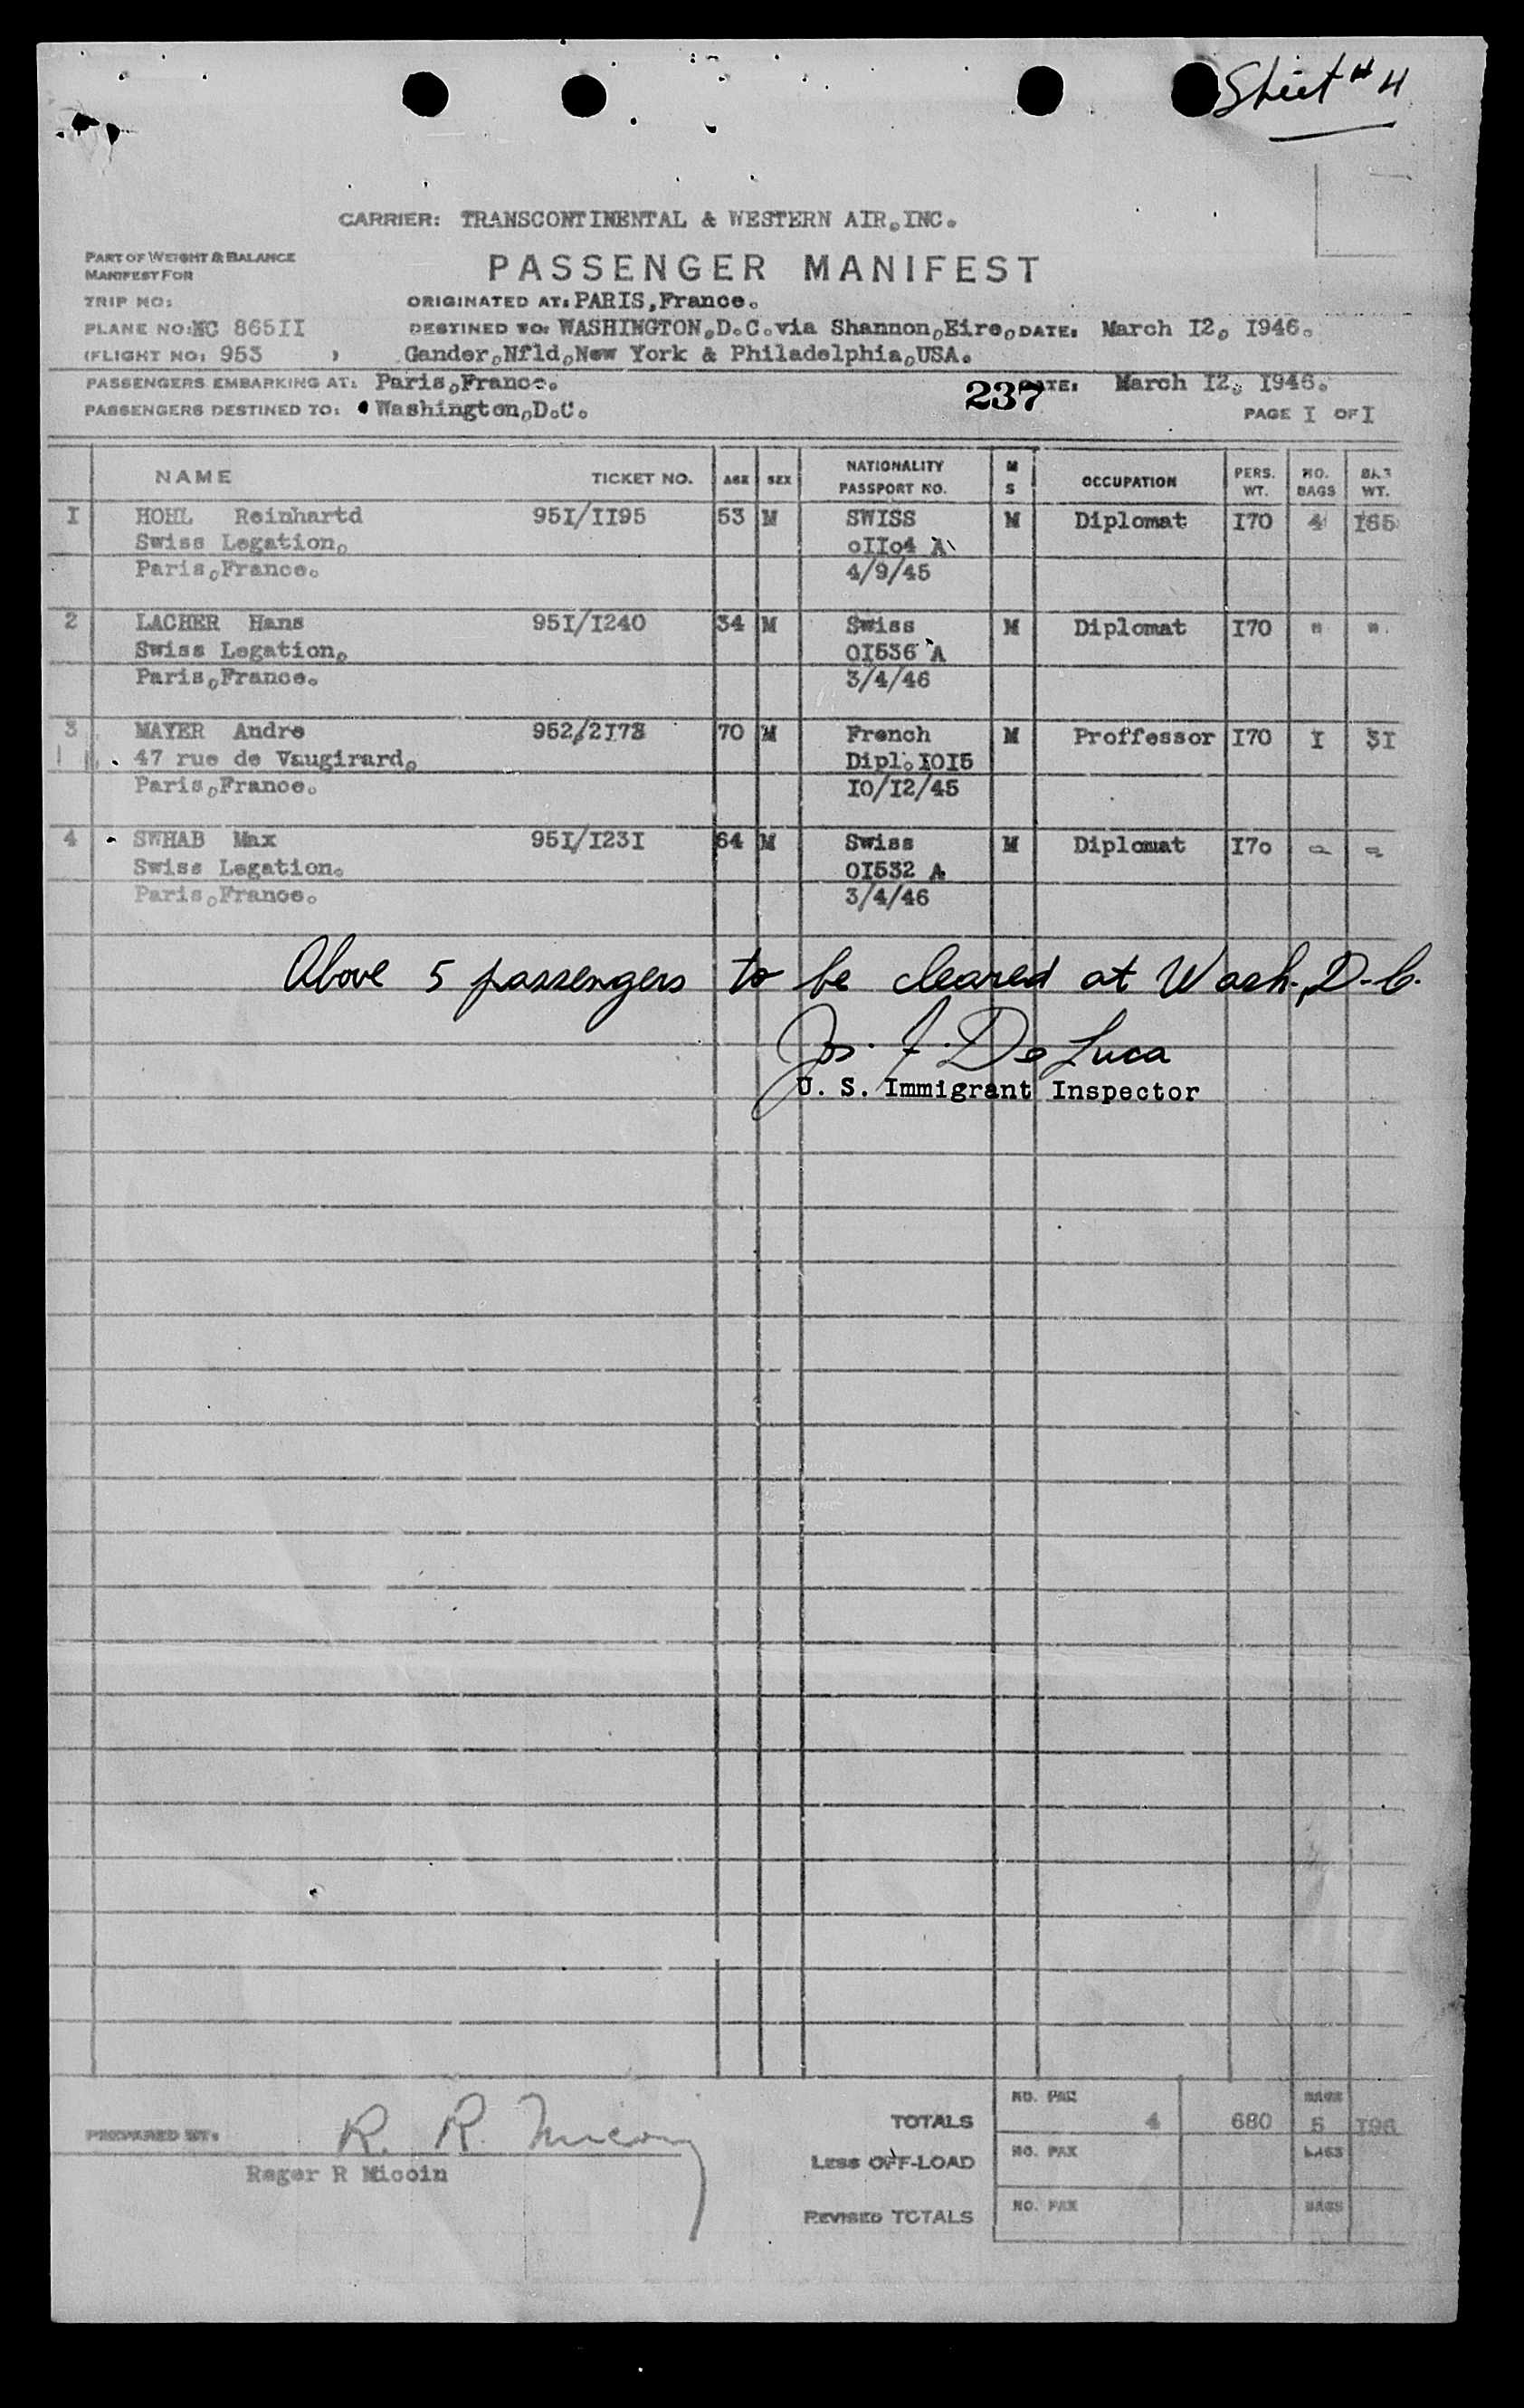 Sheet # 4
CARRIER: TRANSCONTINENTAL & WESTERN AIR.INC.
PART OF WEIGHT & BALANCE
MANIFEST FOR
PASSENGER MANIFEST
TRIP NO:
ORIGINATED AT: PARIS,France.
PLANE NO: NC 865II
DESTINED TO: WASHINGTON.D.C.via Shannon,Eire, DATE: March I2, I946.
(FLIGHT NO: 953 )
Gander,Nfld,New York & Philadelphia,USA.
PASSENGERS EMBARKING AT: Paris,France.
237
DATE: March I2, I946.
PASSENGERS DESTINED TO: Washington,D.C.
PAGE I OF I
NAME TICKET NO. AGE SEX NATIONALITY PASSPORT NO. M S OCCUPATION PERS. WT. NO. BAGS BAG WT.
I HOHL Reinhartd 95I/II95 53 M SWISS M Diplomat I70 4 I65
Swiss Legation, oIIo4 A
Paris,France. 4/9/45
2 LACHER Hans 95I/I240 34 M Swiss M Diplomat I70 " "
Swiss Legation, OI536 A
Paris,France. 3/4/46
3 MAYER Andre 952/2I73 70 M French M Proffessor I70 I 3I
47 rue de Vaugirard, Dipl.IOI5
Paris,France. IO/I2/45
4 SWHAB Max 95I/I23I 64 M Swiss M Diplomat I7o
Swiss Legation. OI532 A
Paris,France. 3/4/46
Above 5 passengers to be cleared at Wash., D.C.
Jos. F. De Luca
U. S. Immigrant Inspector
PREPARED BY:
Roger R Micoin
TOTALS NO. PAX 4 680 BAGS 5 I96
LESS OFF-LOAD NO. PAX BAGS
REVISED TOTALS NO. PAX BAGS